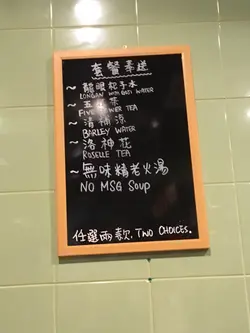 套餐奉送
~ 龍眼杞子水
LONGAN WITH GOJI WATER
~ 五花茶
FIVE FLOWER TEA
~ 清補涼
BARLEY WATER
~ 洛神花
ROSELLE TEA
~ 無味精老火湯
NO MSG Soup
任選兩款. TWO CHOICES.